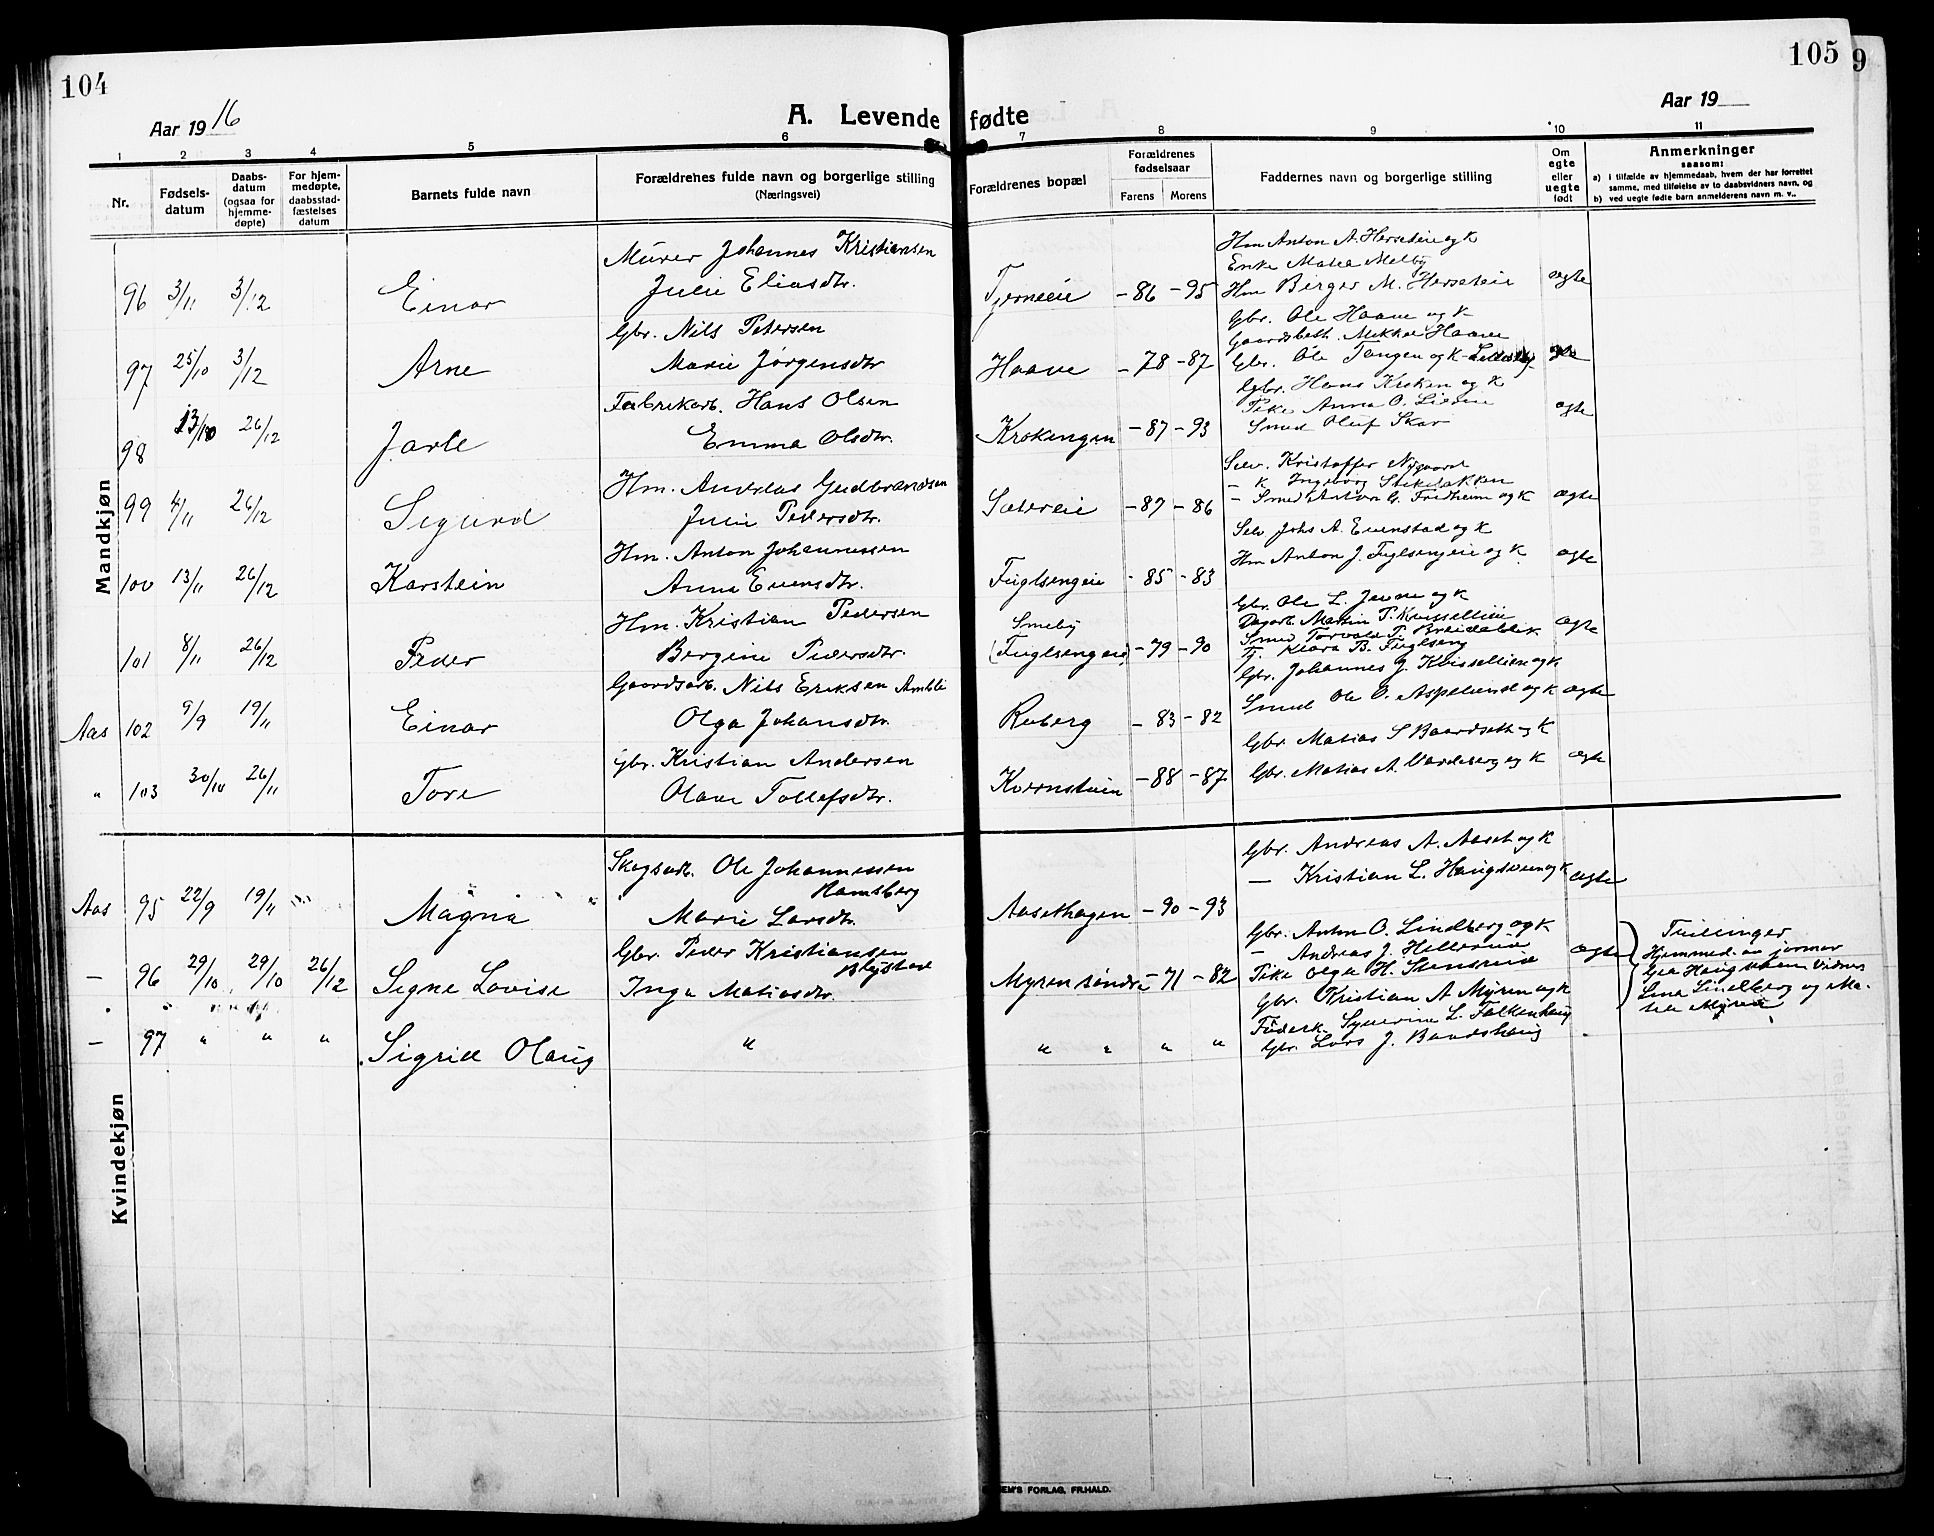 104
105
9
Aar 1916
A. Levende fødte
Aar 19
1 2 3 4 5 6 7 8 9 10 11
Nr.
Fødsels-datum
Daabs-datum (ogsaa for hjemme-døpte)
For hjem-medøpte, daabsstad-fæstelses datum
Barnets fulde navn
Forældrenes fulde navn og borgerlige stilling
(Næringsvei)
Forældrenes bopæl
Forældrenes fødselsaar
Farens Morens
Faddernes navn og borgerlige stilling
Om egte eller uegte født
Anmerkninger
saasom:
a) i tilfælde av hjemmedaab, hvem der har forrettet
samme, med tilføielse av to daabsvidners navn, og
b) ved uegte fødte barn anmelderens navn m. v..
Mandkjøn
Murer Johannes Kristiansen Hm Anton A. Herseteie og K
Enke Mathea Melby
96 3/11 3/12 Einar Julie Eliasdtr. Tjerneeie -86 -95 Hm Birger M. Herseteie ægte
Gbr. Nils Petersen Gbr. Ole Haave og K
Gaardsbest. Mikkel Haave
97 25/10 3/12 Arne Marie Jørgensdtr Haave -78 -87 Gbr. Ole Tangen og K
Fabrikarb. Hans Olsen Gbr. Hans Kroken og K
Pike Anna O. Lieeie
98 13/10 26/12 Jarle Emma Olsdtr. Krokengen -87 -93 Smed Oluf Skar ægte
Hm. Andreas Gudbrandsen Selv. Kristoffer Nygaard
- K Ingeborg Stikelakken
99 4/11 26/12 Sigurd Julie Pedersdtr. Sætereie -87 -86 - Smed Anton G. Fredheim og K ægte
Hm. Anton Johannessen Selv Johs A. Evenstad og K
100 13/11 26/12 Karstein Anna Evensdtr. Fuglsengeie -85 -83 Hm Anton J. Fuglsengeie og K. ægte
Hm. Kristian Pedersen Smeby Gbr. Ole L. Jevne og K
Dagarb. Martin P. Kvisselliie
101 8/11 26/12 Peder Bergine Pedersdtr. (Fuglsengeie) -79 -90 Smed Torvald P. Breidablik ægte
Tj. Klara B. Fuglseng
Gaardsarb. Nils Eriksen Amblie Gbr. Johannes J. Kvissellien og K
Aas 102 9/9 19/11 Einar Olga Johansdtr. Roberg -83 -82 Smed Ole O. Aspelund og K ægte
Gbr. Kristian Andersen Gbr. Matias S Baardseth og K
" 103 30/10 26/11 Tore Olave Tollefsdtr. Kvernstuen -88 -87 Gbr. Matias A. Vardeberg og K ægte
Kvindekjøn
Skogsarb. Ole Johannessen Ramsberg Gbr. Andreas A. Aaset og K
Aas 95 22/9 19/11 Magna Marie Larsdtr. Aasethagen -90 -93 - Kristian L. Haugsveen og K ægte
Gbr. Peder Kristiansen Gbr. Anton O. Lindberg og K
- Andreas J. Hellerud
- 96 29/10 29/10 26/12 Signe Lovise Inga Matiasdtr. Myren søndre -71 -82 Pike Olga H. Stensrud ægte
Gbr. Kristian A Myren og K
Tvillinger
Hjemmed. av jormor
Gea Haugsveen Vidner
Lina Lindberg og Ma-
tea Myren
- 97 " " " Sigrid Olaug " " " " " Føderk. Syverine L. Falkenhaug
Gbr. Lars J. Baardshaug
EM'S FORLAG, FR.HALD.